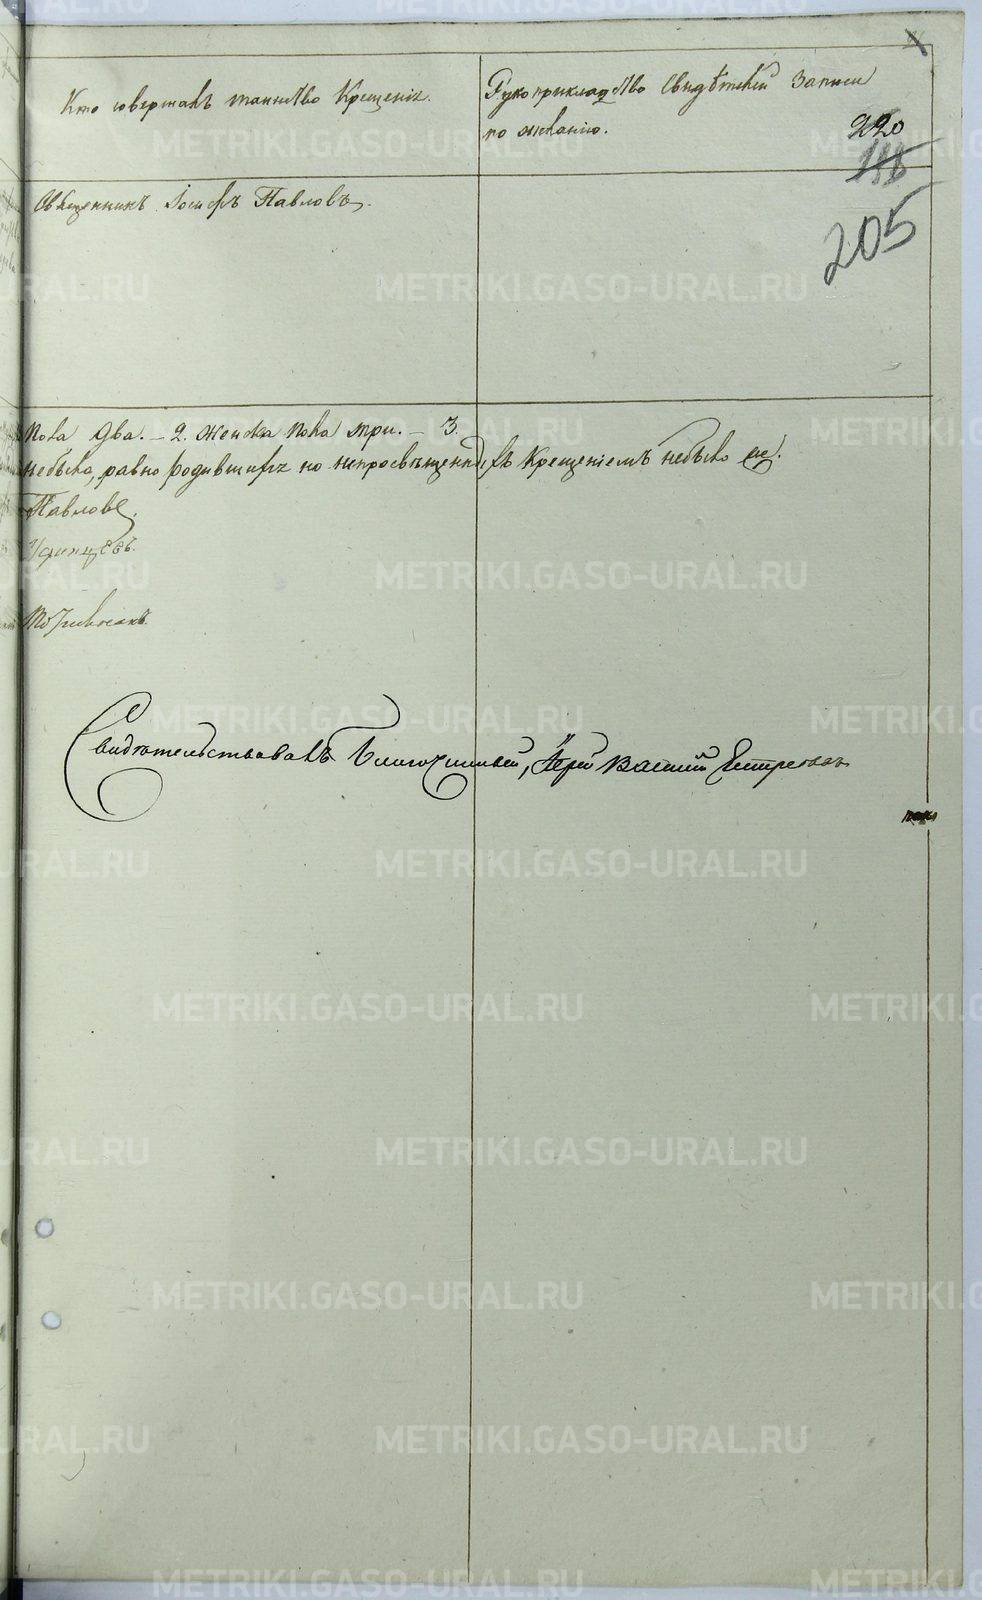 Кто совершалъ таинство Крещенія.
Рукоприкладство Свидѣтелей Записи
по желанію.
220
205
Священникъ Іосифъ Павловъ.
пола два. – 2. женска пола три. – 3.
небыло, равно родившихся но непросвѣщенныхъ Крещеніемъ небыло
Павловъ.
Удинцевъ.
Свидѣтельствовалъ Благочинный, Іерей Василій
METRIKI.GASO-URAL.RU